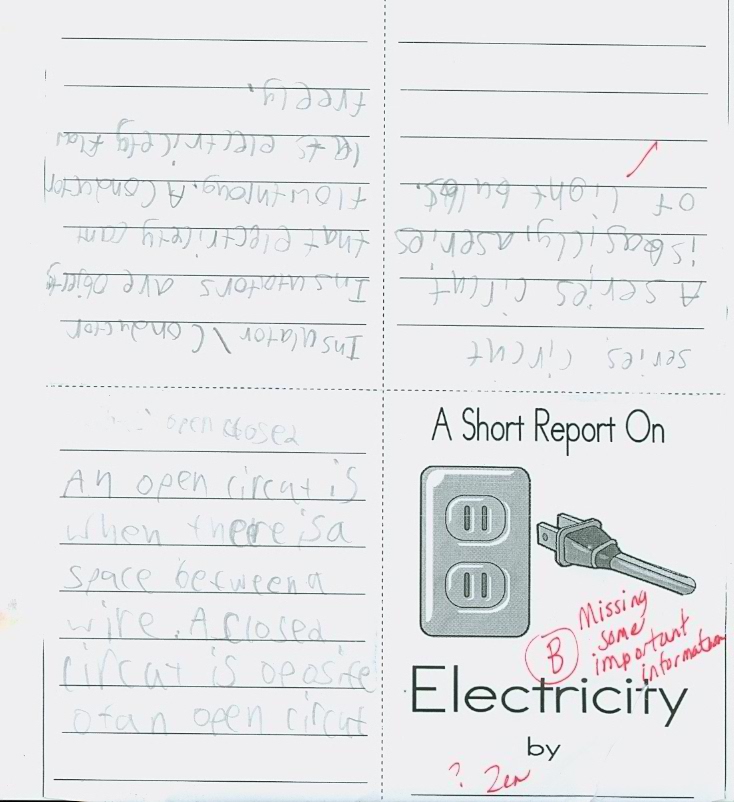 A Short Report On
Electricity
by
? Zen
B
Missing
some
important
information
open closed
An open circut is
when there is a
space between a
wire. A closed
circut is oposite
of an open circut
Insulator/Conductor
Insulators are objects
that electricety cant
flow throug. A Conductor
lets electricety flow
freely.
series circut
A series circut
is basiclly, a series
of light bulbs.